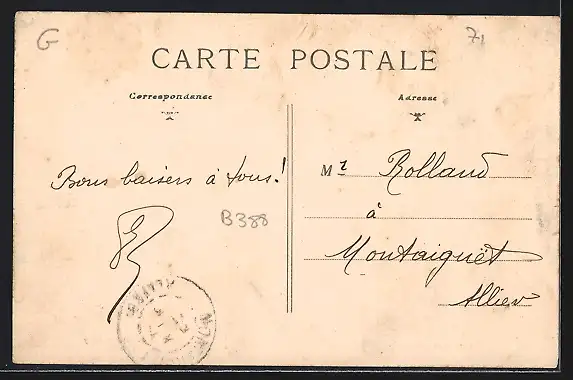 G
71
CARTE POSTALE
Correspondance
Adresse
Bons baisers à tous!
B388
Mr Rolland
à
Montaiguët
Allier